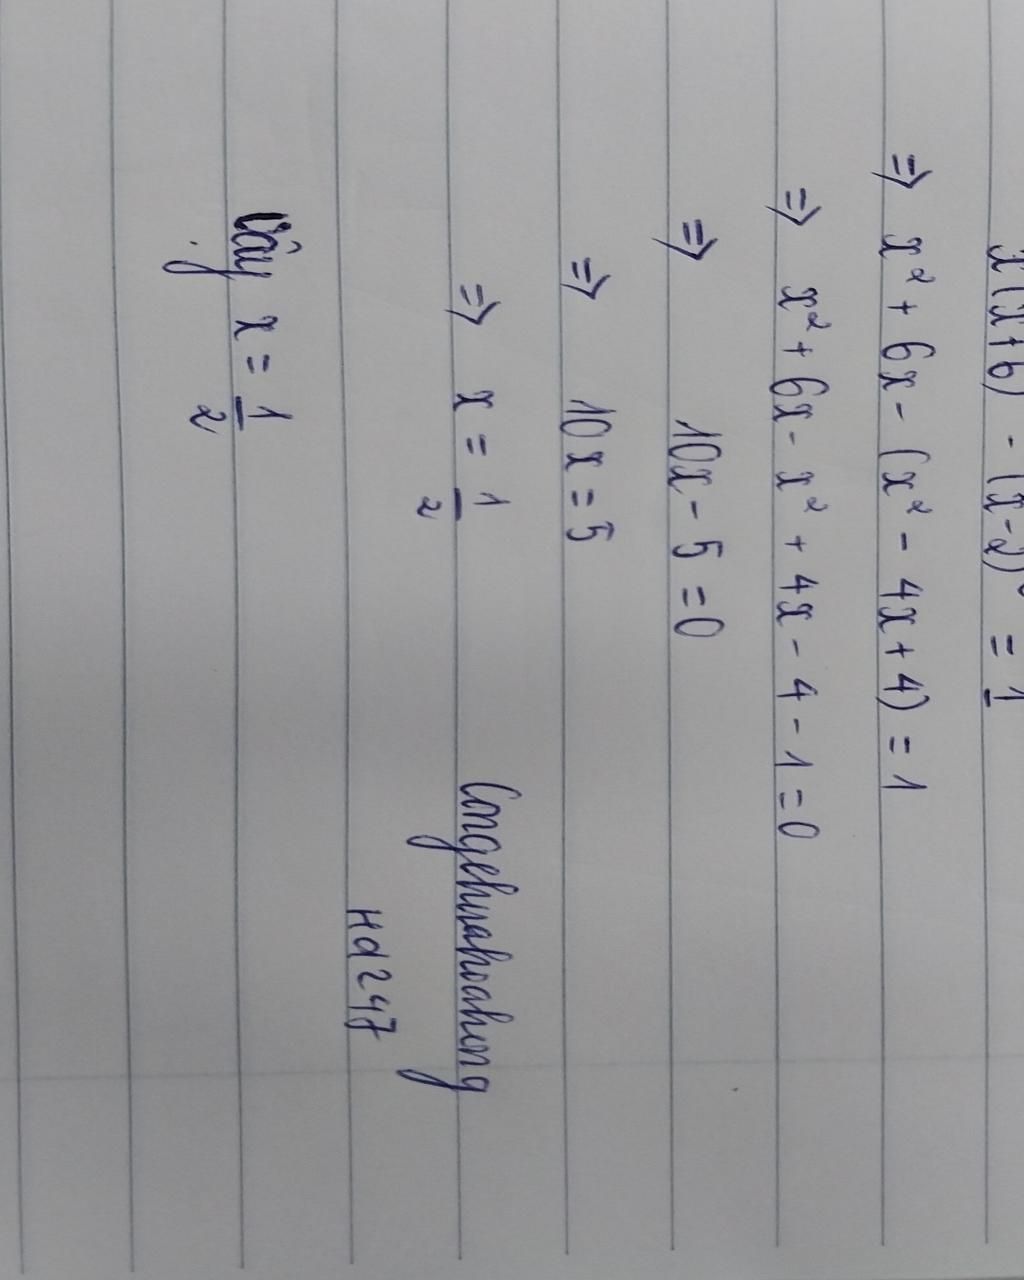 x(x+6) - (x-2)² = 1
⇒ x² + 6x - (x² - 4x + 4) = 1
⇒ x² + 6x - x² + 4x - 4 - 1 = 0
⇒ 10x - 5 = 0
⇒ 10x = 5
⇒ x = 1/2
Congchuahoahong
Hd247
Vậy x = 1/2